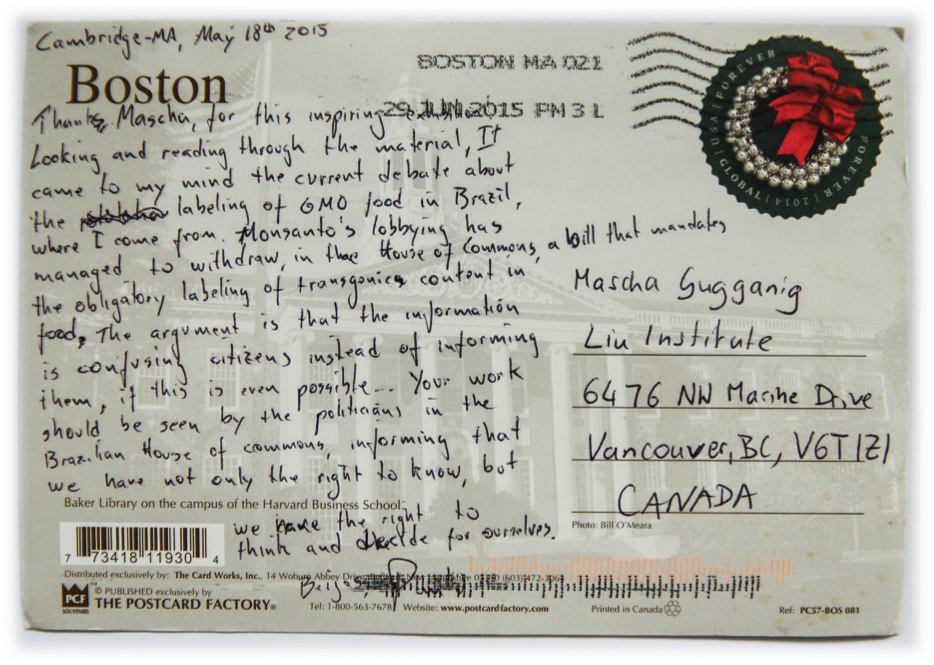 Cambridge-MA, May 18th 2015
Boston
Thanks Mascha, for this inspiring
Looking and reading through the material, It
came to my mind the current debate about
the labeling of GMO food in Brazil,
where I come from. Monsanto's lobbying has
managed to withdraw, in the House of Commons, a bill that mandates
the obligatory labeling of transgenics content in
food. The argument is that the information
is confusing citizens instead of informing
them, if this is even possible... Your work
should be seen by the politicians in the
Brazilian House of commons, informing that
we have not only the right to know, but
we have the right to
think and decide for ourselves.
BOSTON MA 021
29 JUN 2015 PM 3 L
USA FOREVER
FOREVER
2014
GLOBAL
Mascha Gugganig
Liu Institute
6476 NW Marine Drive
Vancouver, BC, V6T1Z1
CANADA
Photo: Bill O'Meara
Baker Library on the campus of the Harvard Business School.
7 73418 11930 4
Distributed exclusively by: The Card Works, Inc., 14 Woburn Abbey Drive
PCF
SOUVENIRS
© PUBLISHED exclusively by
THE POSTCARD FACTORY®
Tel: 1-800-563-7678 Website: www.postcardfactory.com Printed in Canada Ref: PC57-BOS 081